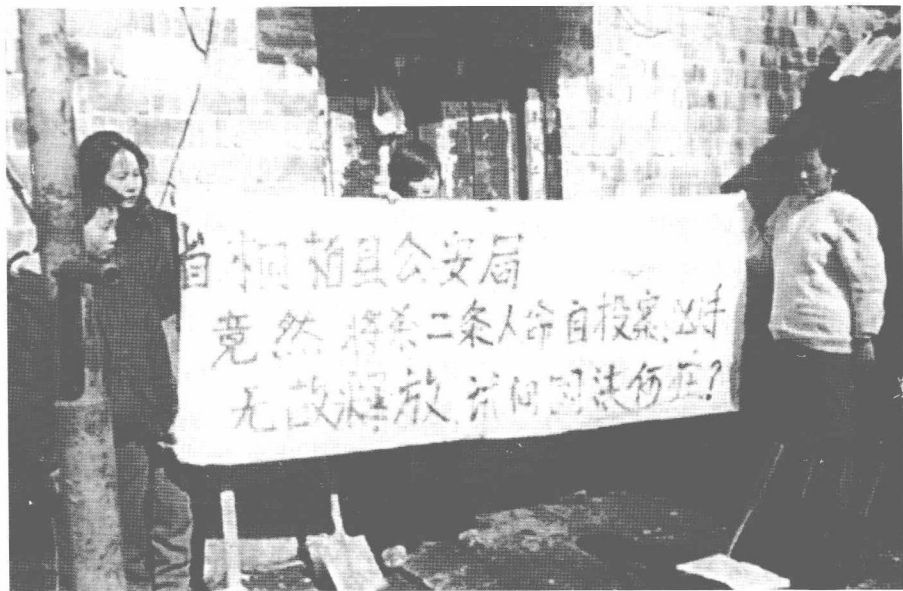 省桐柏县公安局
竟然将杀二条人命自投案凶手
无故释放，试问国法何在？